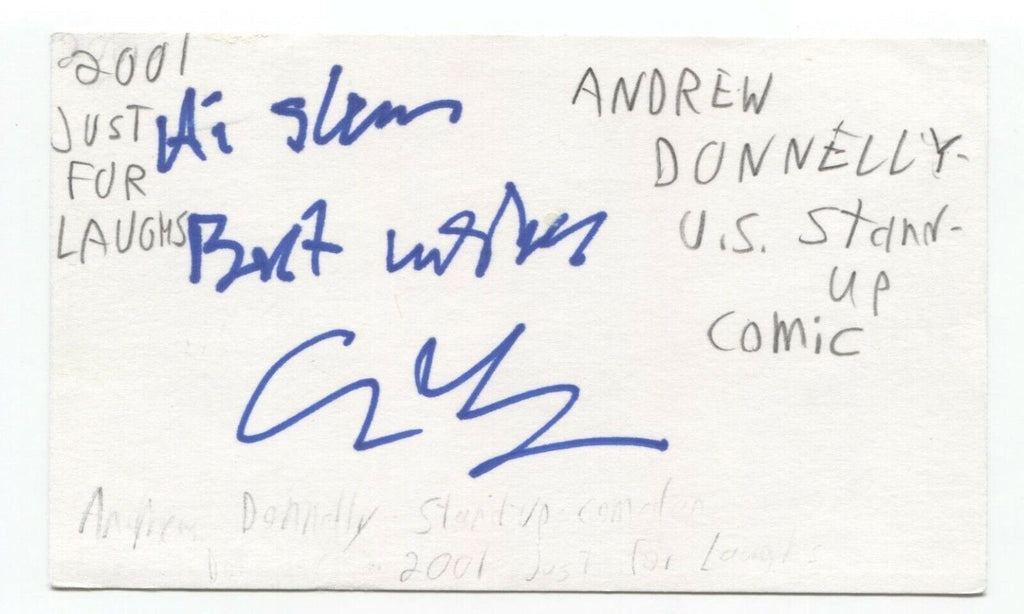 2001
JUST
FOR
LAUGHS
Hi
Best wishes
ANDREW
DONNELLY-
U.S. Stand-
UP
COMIC
Andrew Donnelly - Stand up comedian
2001 Just For Laughs